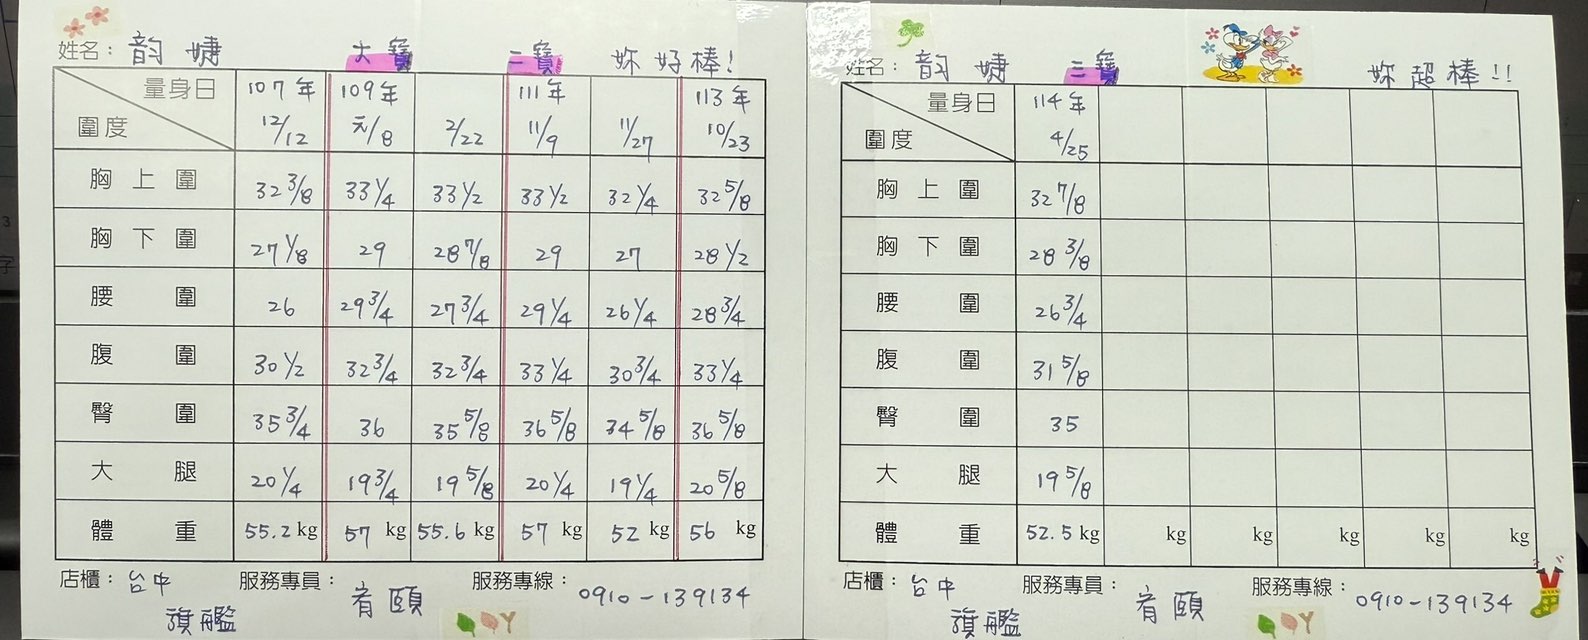 姓名：韵婕 大寶 二寶 妳好棒！
量身日 107年 109年 111年 113年
圍度 12/12 元/8 2/22 11/9 11/27 10/23
胸上圍 32 3/8 33 1/4 33 1/2 33 1/2 32 1/4 32 5/8
胸下圍 27 1/8 29 28 7/8 29 27 28 1/2
腰圍 26 29 3/4 27 3/4 29 1/4 26 1/4 28 3/4
腹圍 30 1/2 32 3/4 32 3/4 33 1/4 30 3/4 33 1/4
臀圍 35 3/4 36 35 5/8 36 5/8 34 5/8 36 5/8
大腿 20 1/4 19 3/4 19 5/8 20 1/4 19 1/4 20 5/8
體重 55.2 kg 57 kg 55.6 kg 57 kg 52 kg 56 kg
店櫃：台中 服務專員：宥頤 服務專線：0910-139134
旗艦
姓名：韵婕 三寶 妳超棒!!
量身日 114年
圍度 4/25
胸上圍 32 7/8
胸下圍 28 3/8
腰圍 26 3/4
腹圍 31 5/8
臀圍 35
大腿 19 5/8
體重 52.5 kg kg kg kg kg kg
店櫃：台中 服務專員：宥頤 服務專線：0910-139134
旗艦